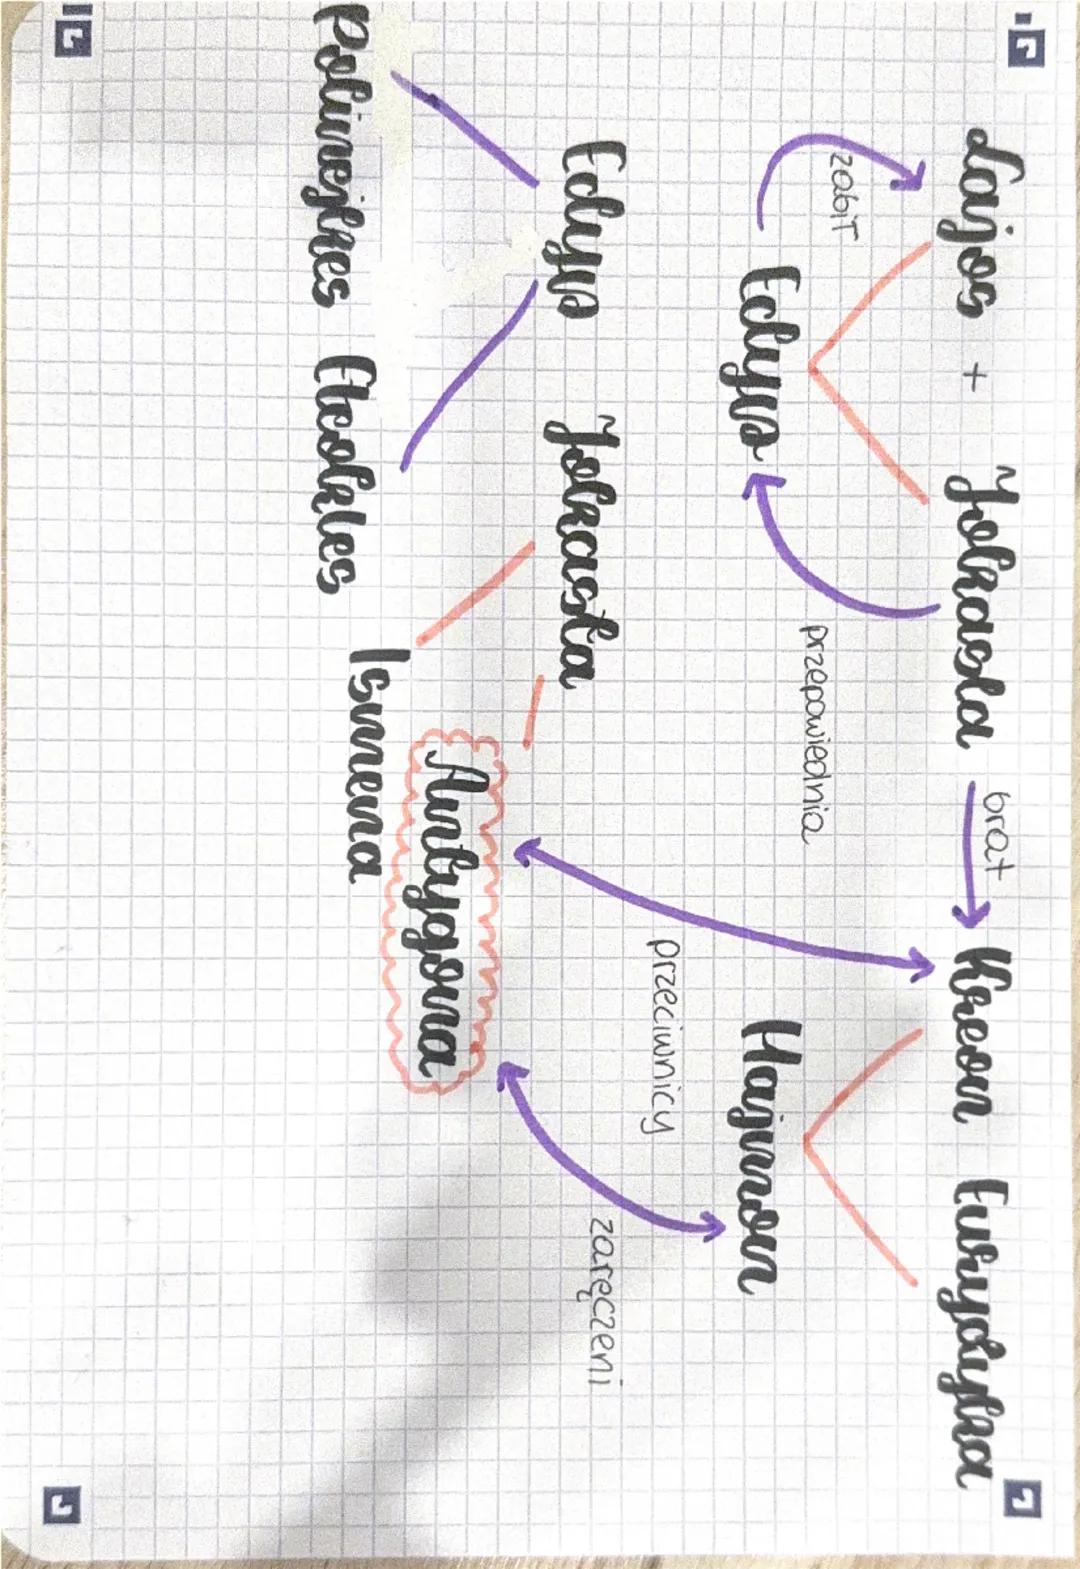 Lajos + Jokasta brat Kreon Eurydyka
zabił
przepowiednia
Edyp
Hajmon
przeciwnicy
Edyp Jokasta
zaręczeni
Antygona
Polinejkes Eteokles Ismena